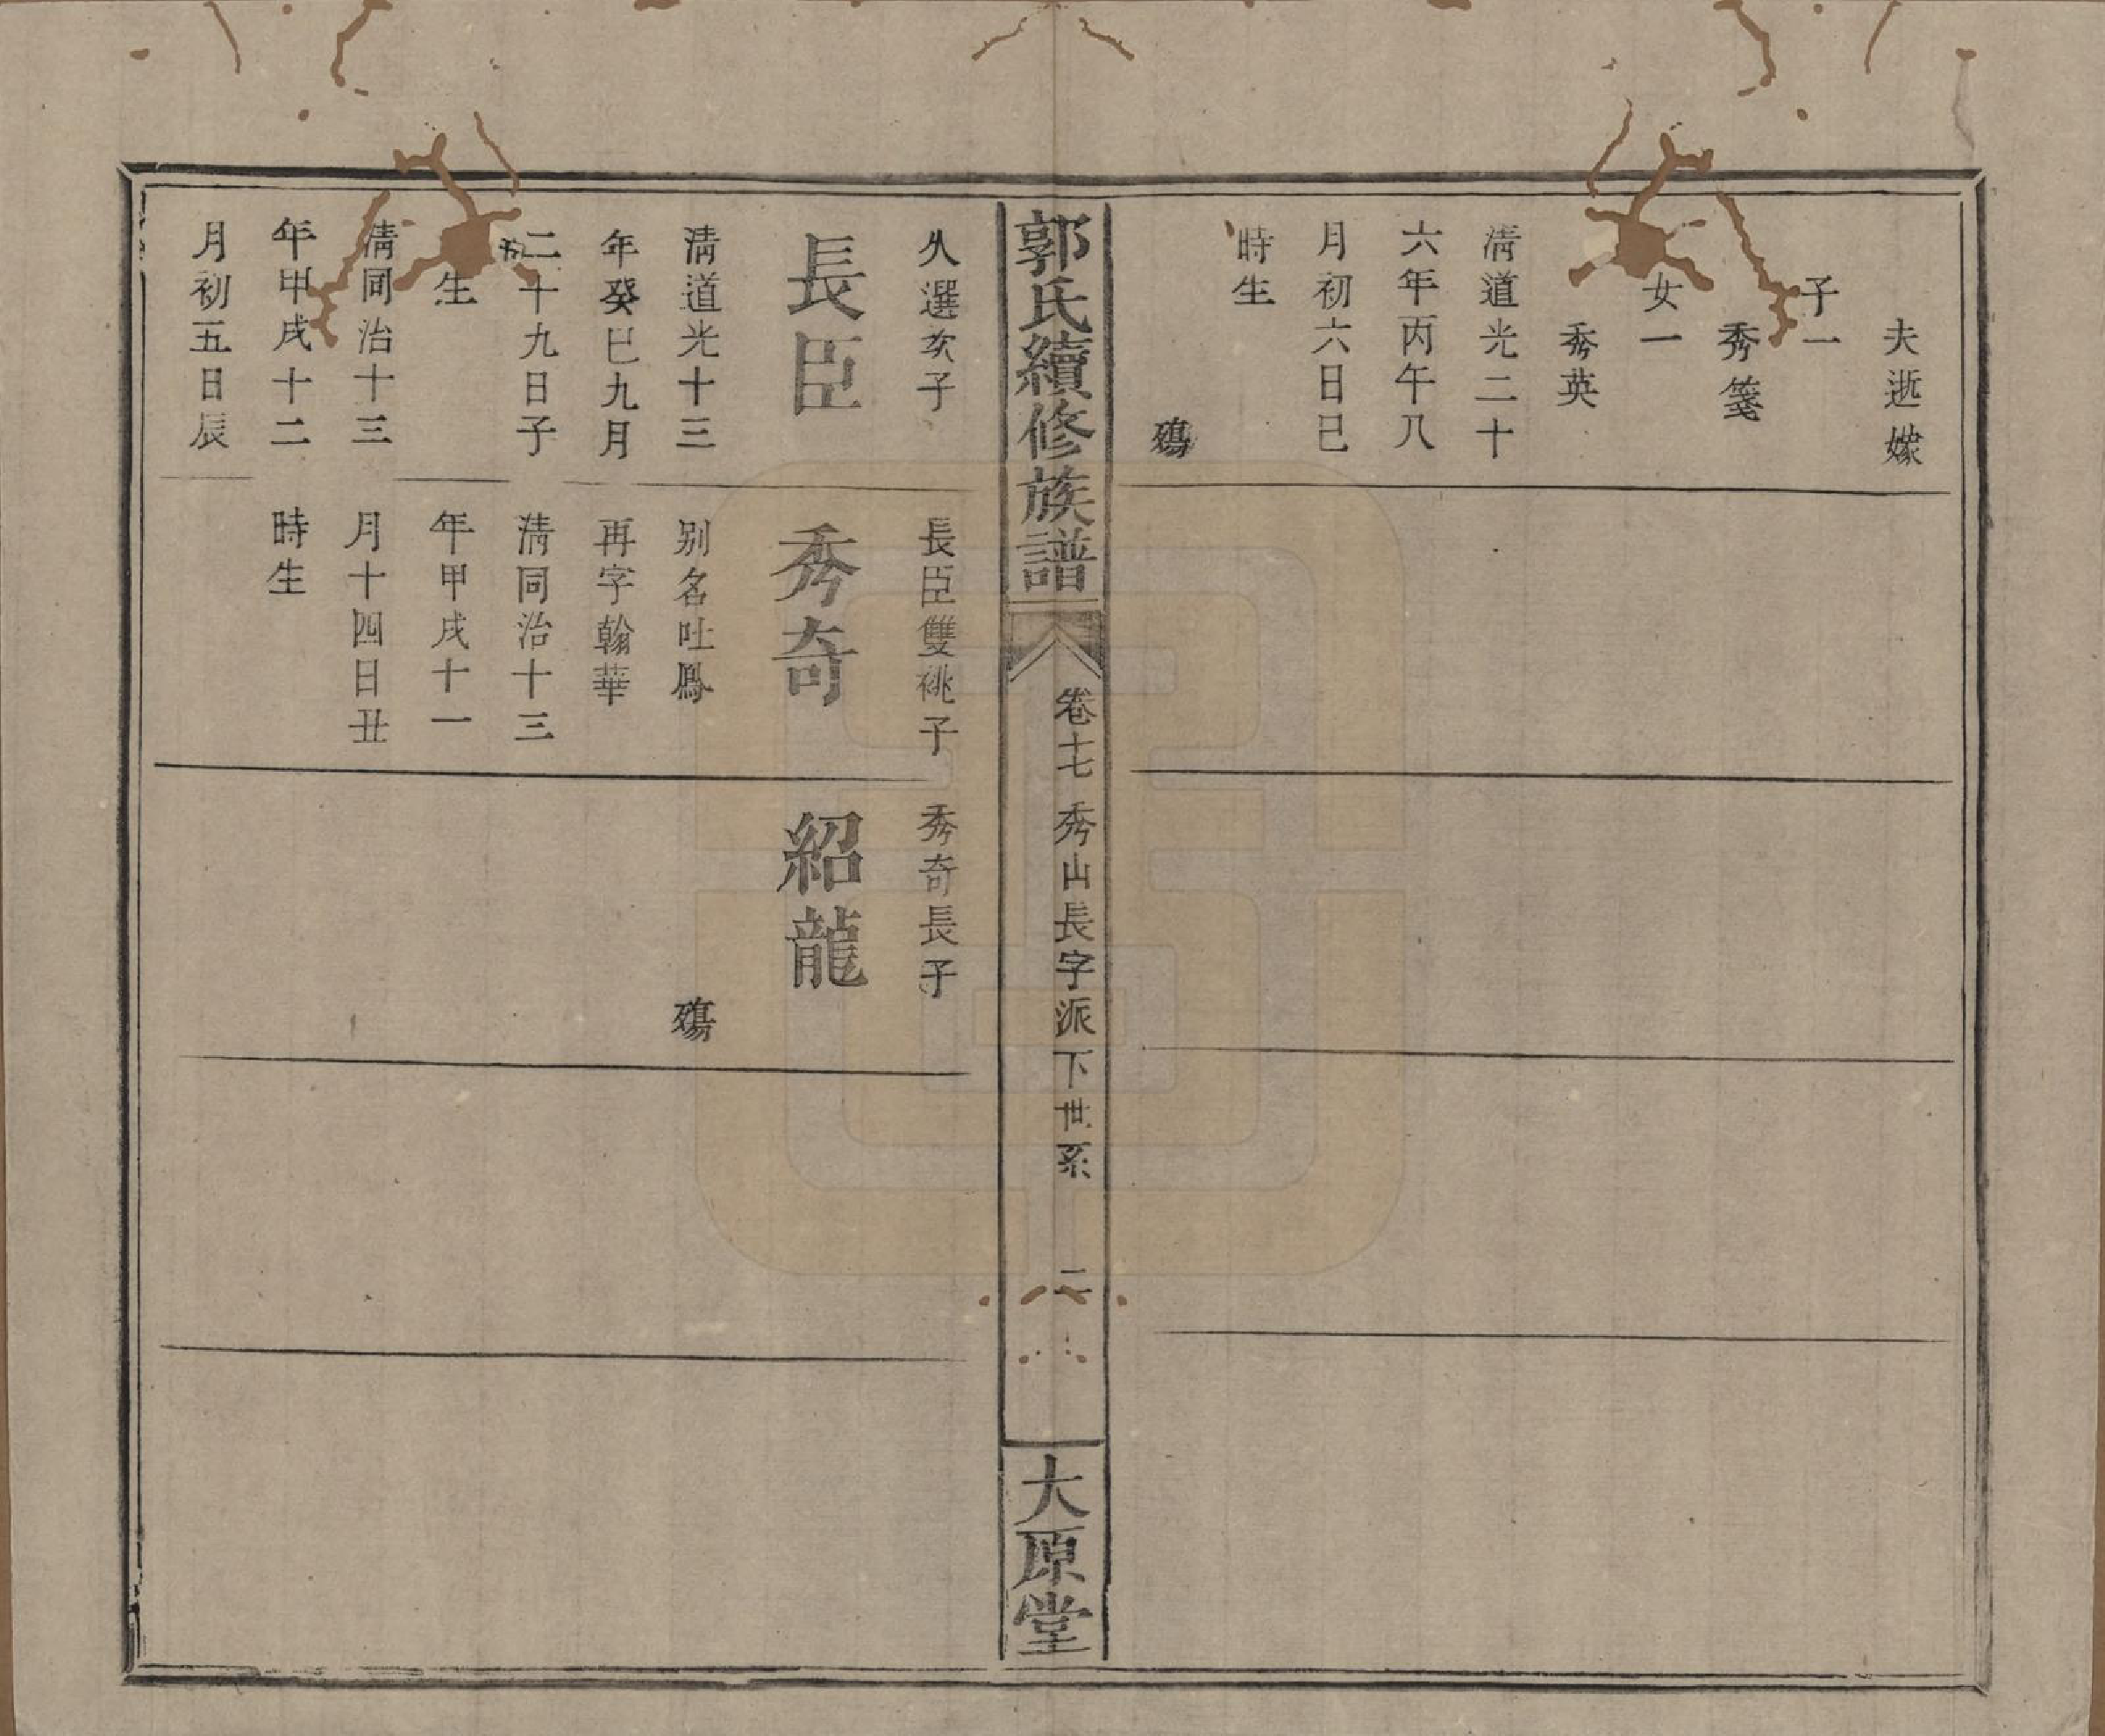 夫逝嫁
子一
秀箋
女一
秀英
淸道光二十
六年丙午八
月初六日巳
時生
殤
郭氏續修族譜
卷七
秀山長字派下世系
二
大原堂
久選次子
長臣
淸道光十三
年癸巳九月
二十九日子
生
淸同治十三
年甲戌十二
月初五日辰
長臣雙祧子
秀奇
别名吐鳳
再字翰華
淸同治十三
年甲戌十一
月十四日丑
時生
秀奇長子
紹龍
殤